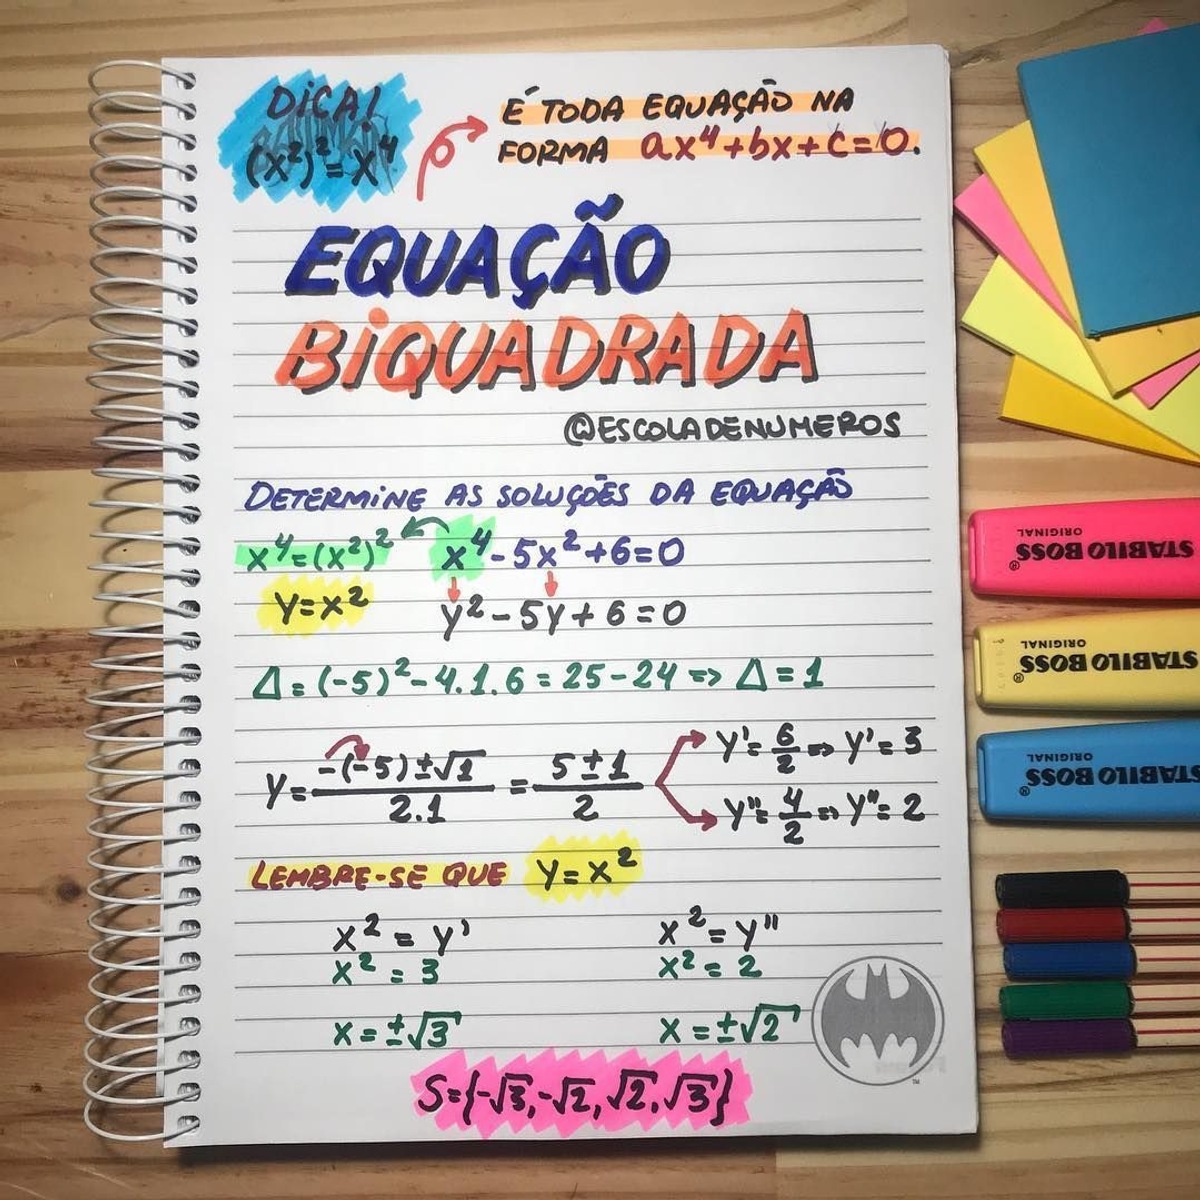 DICA!
(x²)² = x⁴
É TODA EQUAÇÃO NA
FORMA ax⁴+bx+c=0.
EQUAÇÃO
BIQUADRADA
@ESCOLADENUMEROS
DETERMINE AS SOLUÇÕES DA EQUAÇÃO
x⁴=(x²)² x⁴-5x²+6=0
y=x² y²-5y+6=0
Δ=(-5)²-4.1.6=25-24 => Δ=1
y = (-(-5)±√1)/2.1 = (5±1)/2
y'= 6/2 => y'=3
y''= 4/2 => y''=2
LEMBRE-SE QUE y=x²
x² = y' x² = y''
x² = 3 x² = 2
x=±√3 x=±√2
S={-√3,-√2,√2,√3}
STABILO BOSS®
ORIGINAL
STABILO BOSS®
ORIGINAL
STABILO BOSS®
ORIGINAL
™